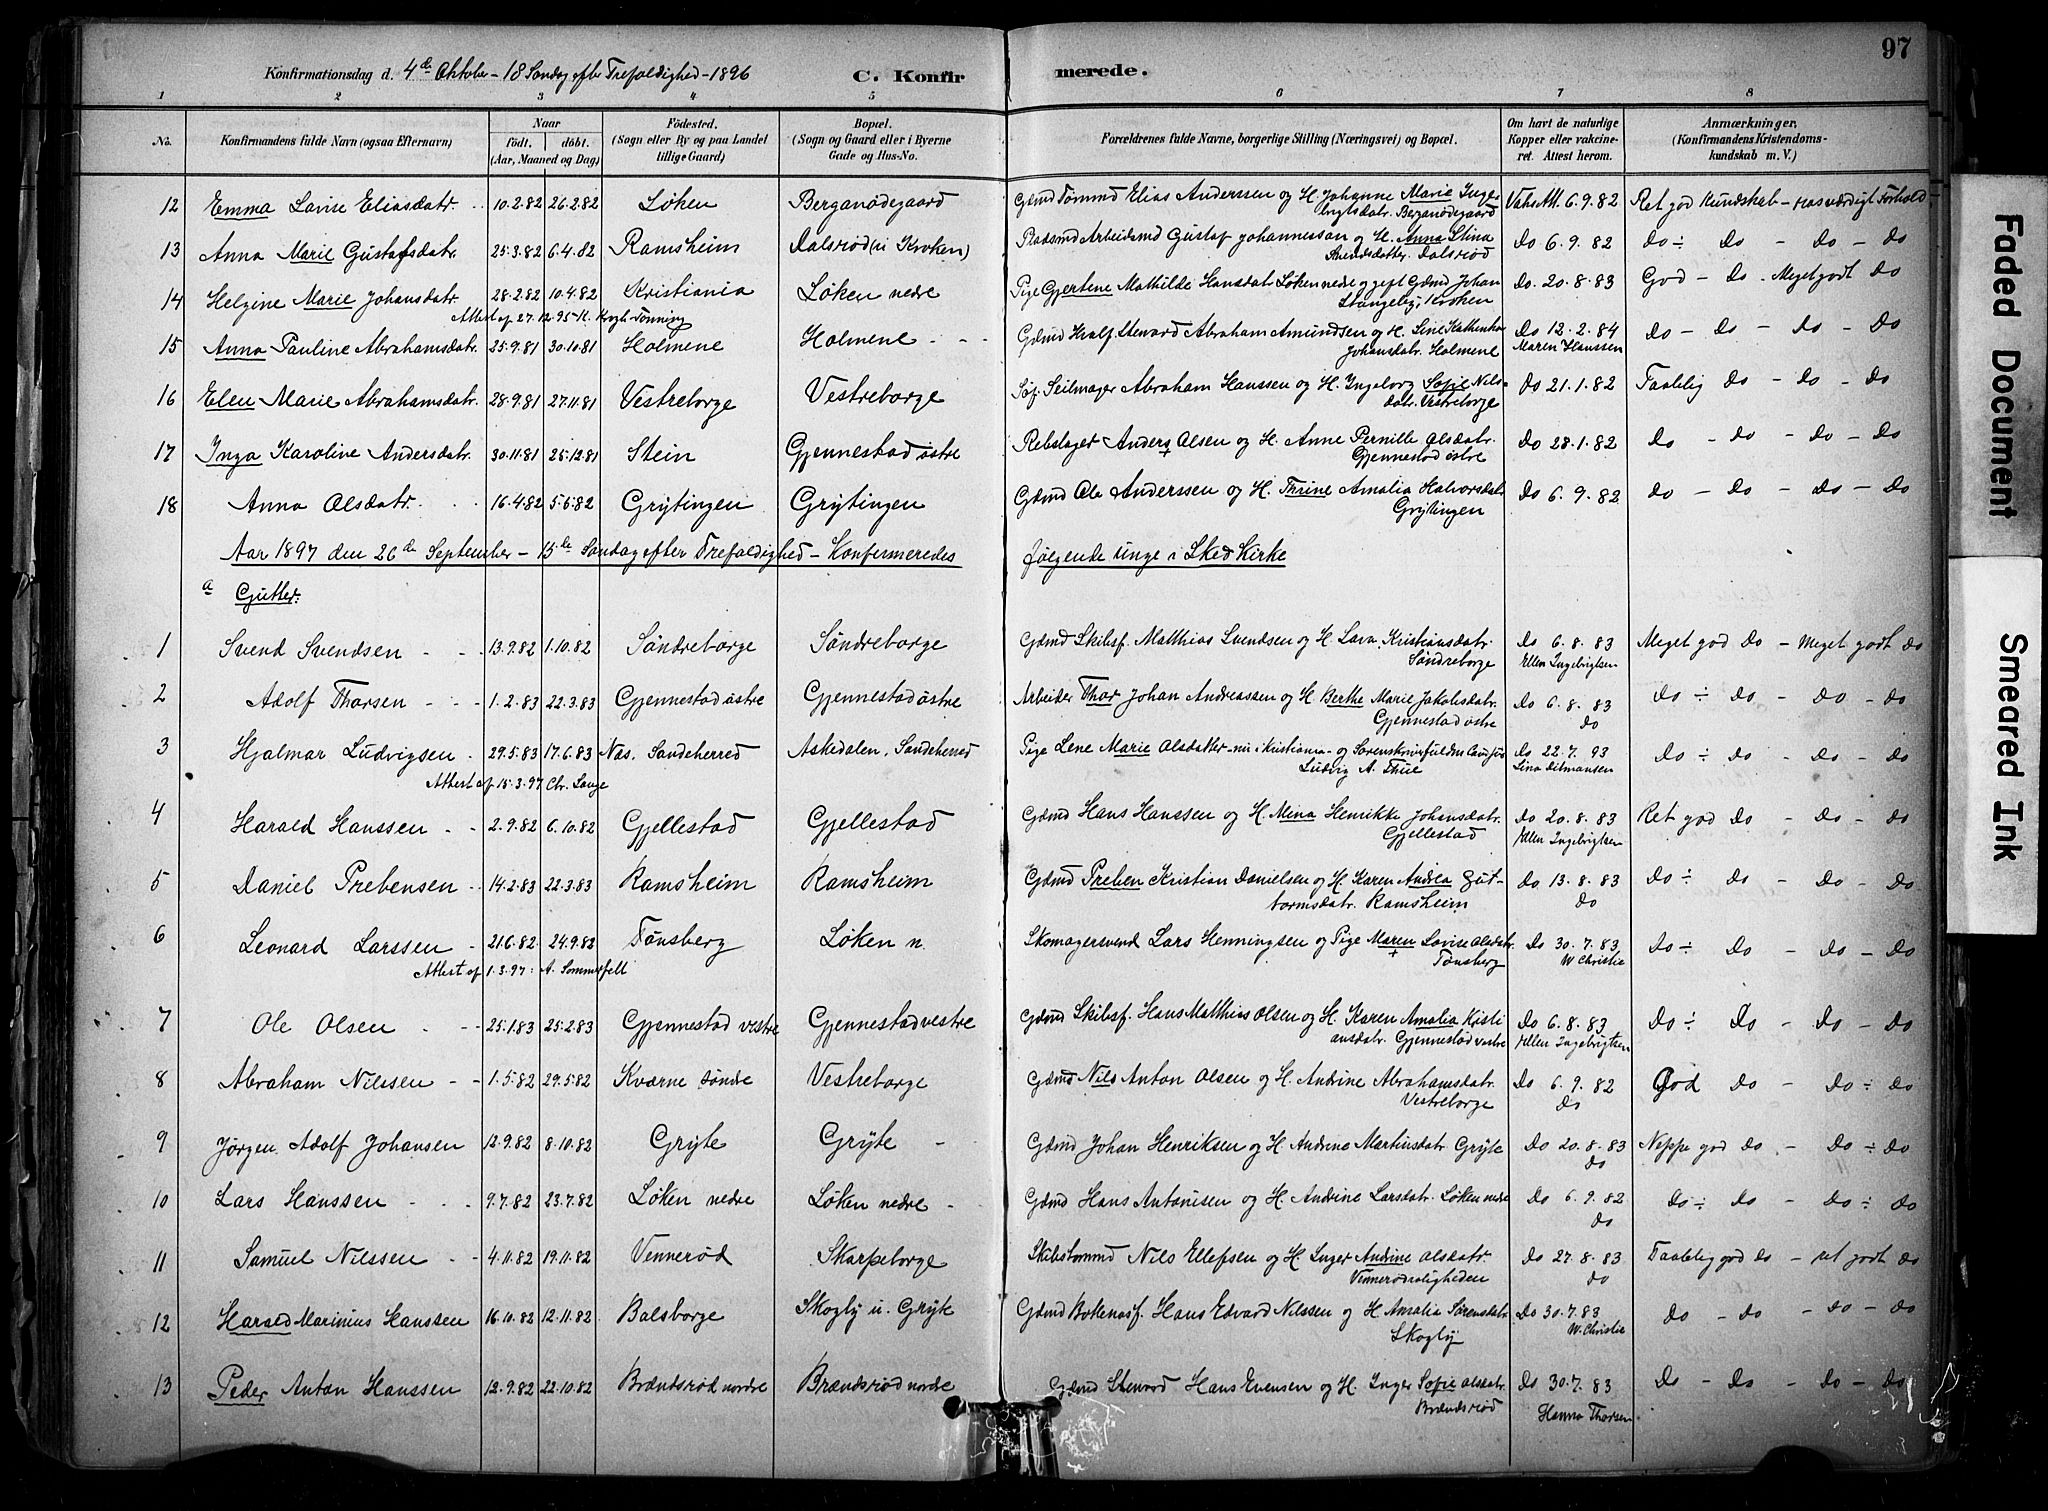 97
Konfirmationsdag d. 4de Oktober - 18 Søndag efter Trefoldighed - 1896 C. Konfirmerede.
1 2 3 4 5 6 7 8
No. Konfirmandens fulde Navn (ogsaa Efternavn) Naar født, døbt. (Aar, Maaned og Dag) Fødested. (Sogn eller By og paa Landet tillige Gaard) Bopæl. (Sogn og Gaard eller i Byerne Gade og Hus-No. Forældrenes fulde Navne, borgerlige Stilling (Næringsvei) og Bopæl. Om havt de naturlige Kopper eller vaccineret. Attest herom. Anmærkninger, (Konfirmandens Kristendomskundskab m. V.)
12 Emma Lovise Eliasdatr. 10.2.82 26.2.82 Løken Berganødegaard Gdmd Tømmd Elias Anderssen og H. Johanne Marie Inge
brigtsdatr. Berganødegaard Vaks Att. 6.9.82 Ret god Kundskab - rosværdigt Forhold
13 Anna Marie Gustafsdatr. 25.3.82 6.4.82 Ramsheim Dalsrød (u Kroken) Pladsmd Arbeidsmd Gustaf Johannessan og H. Anna Stina
Svendsdatter. Dalsrød Do 6.9.82 Do ÷ Do - Do - Do
14 Helgine Marie Johansdatr 28.2.82 10.4.82 Kristiania Løken nedre Pige Gjertine Mathilde Hansdatr Løken nedre og gift Gdmd Johan
Stangeby, Kroken Do. 20.8.83 God - Do - Meget godt Do
Attest af 27.12.95 K. Krogh-Tonning
15 Anna Pauline Abrahamsdatr. 25.9.81 30.10.81 Holmene Holmene Gdmd Kvalf. Steward Abraham Amundsen og H. Line Kathinka
Johansdatr. Holmene Do 12.2.84 Maren Hanssen Do - Do - Do - Do
16 Elen Marie Abrahamsdatr. 28.9.81 27.11.81 Vestreborge Vestreborge Søf. Seilmager Abraham Hanssen og H. Ingeborg Sofie Nils-
datr. Vestreborge Do 21.1.82 Taalelig Do - Do - Do
17 Inga Karoline Andersdatr. 30.11.81 25.12.81 Stein Gjennestad østre Rebslager Anders Olsen og H. Anne Pernille Olsdatr.
Gjennestad østre Do 28.1.82 Do - Do - Do - Do
18 Anna Olsdatr. 16.4.82 5.6.82 Grytingen Grytingen Gdmd Ole Anderssen og H. Thrine Amalia Halvorsdatr
Grytingen Do 6.9.82 Do - Do - Do - Do
Aar 1897 den 26de September - 15de Søndag efter Trefoldighed - Konfermeredes følgende unge i Skee Kirke
a Gutter:
1 Svend Svendsen 13.9.82 1.10.82 Søndreborge Søndreborge Gdmd Skibsf. Matthias Svendsen og H. Lava Kristiansdatr.
Søndreborge Do 6.8.83 Ellen Ingebrigtsen Meget god Do - Meget godt Do
2 Adolf Thorsen 1.2.83 22.3.83 Gjennestad østre Gjennestad østre Arbeider Thor Johan Andreassen og H Berthe Marie Jakobsdatr.
Gjennestad østre Do 6.8.83 Do Do ÷ Do - Do - Do
3 Hjalmar Ludvigsen 29.5.83 17.6.83 Næs. Sandeherred Askedalen, Sandeherred Pige Lene Marie Olsdatter - nu i Kristiania - og Sorenskriverfuldm. Cand. jur
Ludvig A. Thue Do 22.7.93 Lina Ditmansen Do ÷ Do - Do - Do
Attest af 15.3.97 Chr. Lange
4 Harald Hanssen 2.9.82 6.10.82 Gjellestad Gjellestad Gdmd Hans Hanssen og H. Mina Henrikke Johansdatr.
Gjellestad Do 20.8.83 Ellen Ingebrigtsen Ret god Do - Do - Do
5 Daniel Prebensen 14.2.83 22.3.83 Ramsheim Ramsheim Gdmd Preben Kristian Danielsen og H. Karen Andrea Gut-
tormsdatr. Ramsheim Do 13.8.83 Do Do ÷ Do - Do - Do
6 Leonard Larssen 21.6.82 24.9.82 Tønsberg Løken n. Skomagersvend Lars Henningsen og Pige Maren Lovise Olsdatr.
Tønsberg Do 30.7.83 W Christie Do ÷ Do - Do - Do
Attest af 1.3.97: A. Sommerfelt
7 Ole Olsen 25.1.83 25.2.83 Gjennestad vestre Gjennestad vestre Gdmd Skibsf. Hans Matthias Olsen og H. Karen Amalia Kristi
ansdatr. Gjennestad vestre Do 6.8.83 Ellen Ingebrigtsen Do ÷ Do - Do - Do
8 Abraham Nilssen 1.5.82 29.5.82 Kværne søndre Vestreborge Gdmd Nils Anton Olsen og H. Andrine Abrahamsdatr.
Vestreborge Do 6.9.82 Do God Do - Do ÷ Do
9 Jørgen Adolf Johansen 12.9.82 8.10.82 Gryte Gryte Gdmd Johan Henriksen og H. Andrine Martinsdatr Gryte Do 20.8.83 Do Neppe god Do - Do ÷ Do
10 Lars Hanssen 9.7.82 23.7.82 Løken nedre Løken nedre Gdmd Hans Antonisen og H. Andrine Larsdatr. Løken nedre Do 6.9.82 Do Do ÷ Do - Do ÷ Do
11 Samuel Nilssen 4.11.82 19.11.82 Vennerød Skarpeborge Skibstømmd Nils Ellefsen og H. Inger Andrine Olsdatr.
Vennerødboligheden Do 27.8.83 Do Taalelig god Do - ret godt Do
12 Harald Marinius Hanssen 16.10.82 12.11.82 Bolsborge Skogly u. Gryte Gdmd Hans Edvard Nilssen og H. Amalia Sørensdatr
Skogly Do 30.7.83 W. Christie Do - Do - Do - Do
13 Peder Anton Hanssen 12.9.82 22.10.82 Brændsrød nordre Brændsrød nordre Gdmd Steward Hans Evensen og H. Inger Sofie Olsdatr.
Brændsrød Do 30.7.83 Hanna Thorsen Do - Do - Do - Do
Faded Document
Smeared Ink